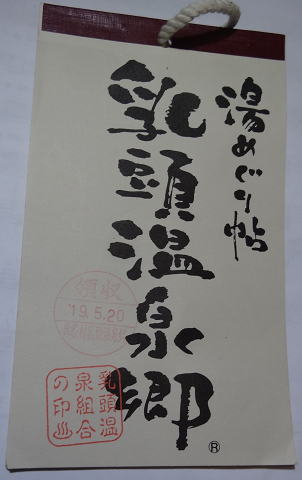 湯めぐり帖
乳頭温泉郷
®
領収
'19.5.20
乳頭温
泉組合
の印